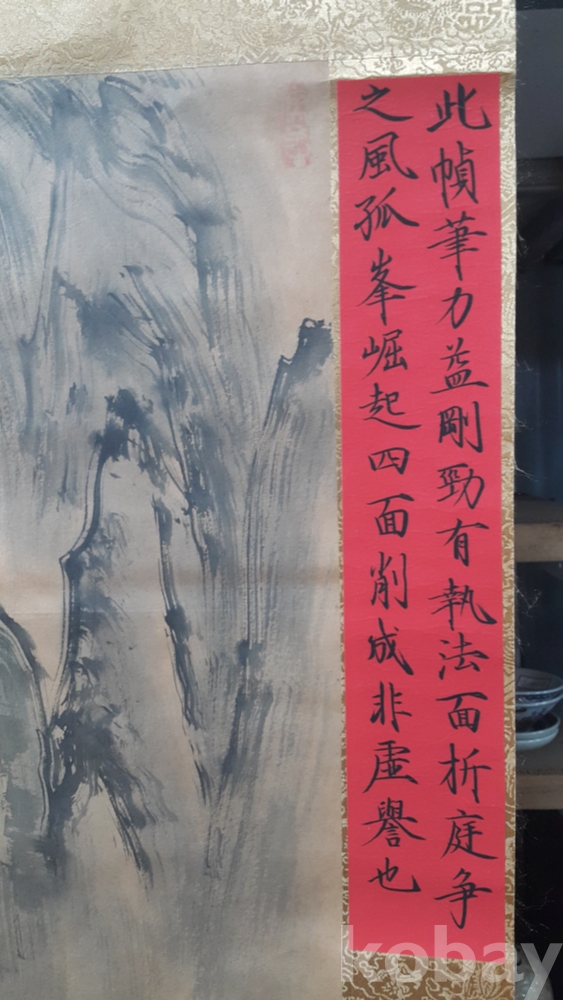 此幀筆力益剛勁有執法面折庭争
之風孤峯崛起四面削成非虛譽也
kobay